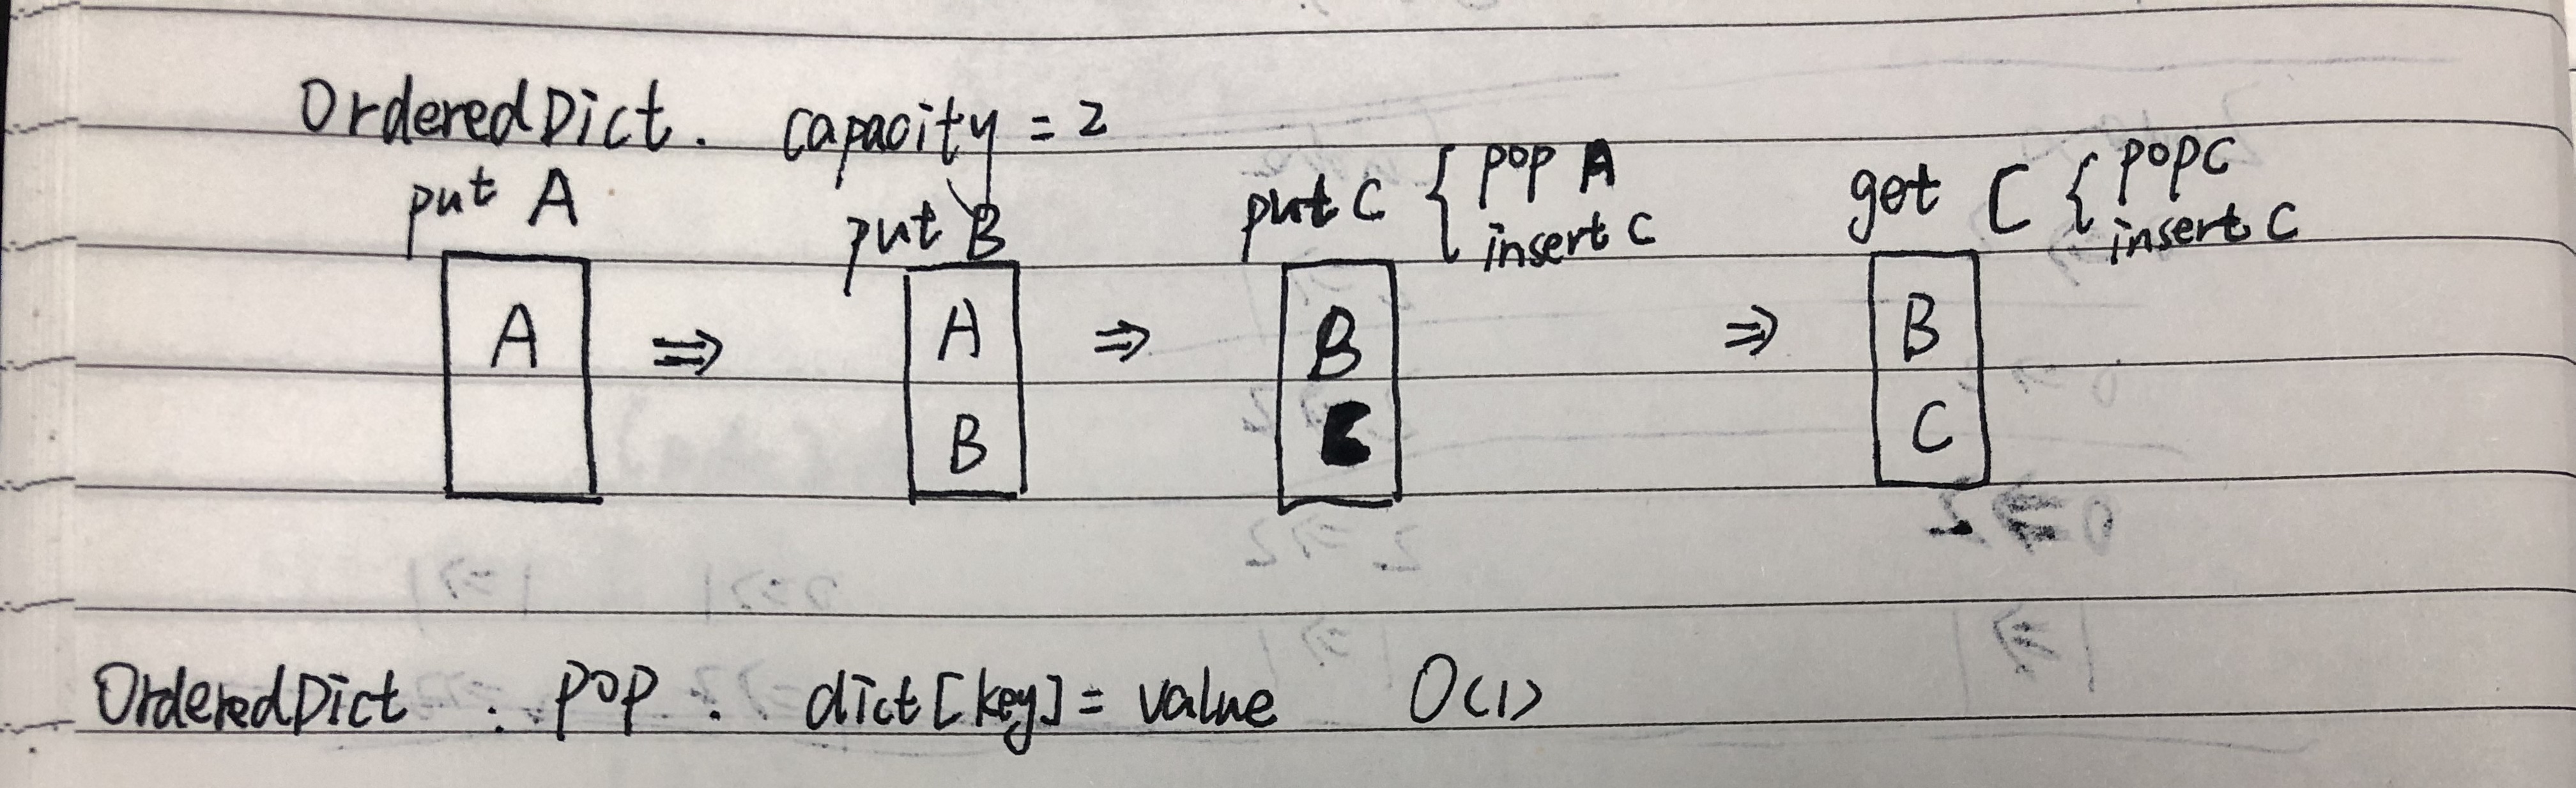 OrderedDict. capacity = 2
put A put B put C { pop A insert C get C { pop C insert C
A ⇒ A B ⇒ B C ⇒ B C
OrderedDict : pop . dict[key] = value O(1)